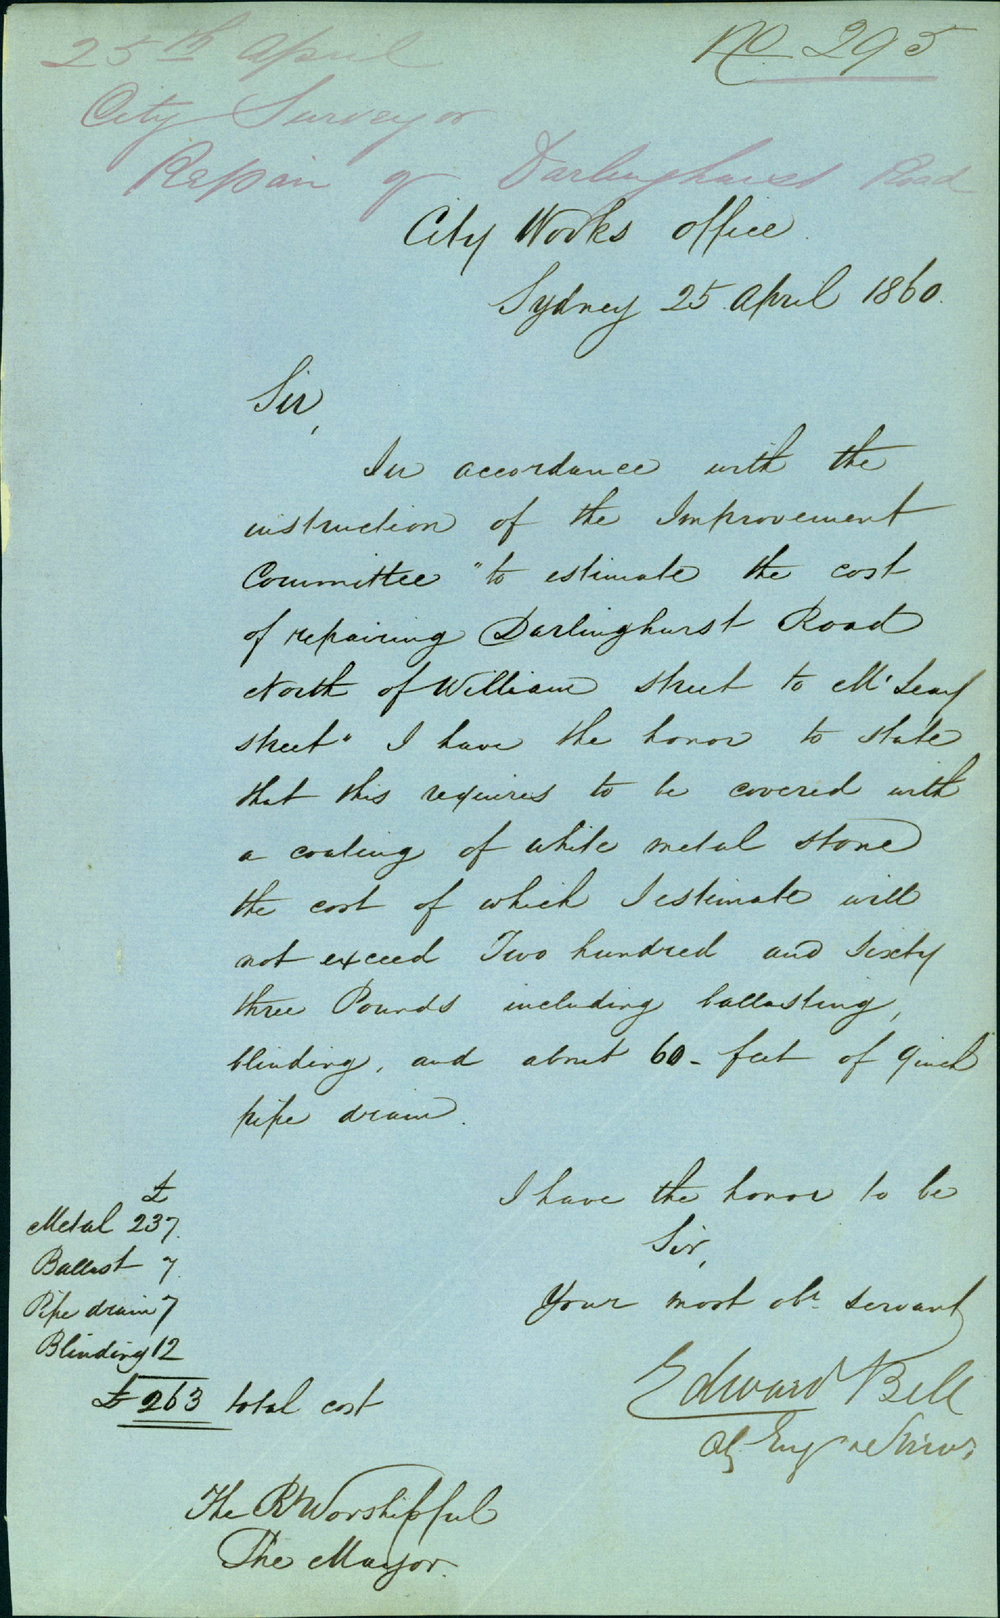 25th April
No 295
City Surveyor
Repair of Darlinghurst Road
City Works Office
Sydney 25 April 1860.
Sir,
In accordance with the
instruction of the Improvement
Committee "to estimate the cost
of repairing Darlinghurst Road
North of William street to McLeay
street" I have the honor to state
that this requires to be covered with
a coating of white metal stone
the cost of which I estimate will
not exceed Two hundred and Sixty
three Pounds including ballasting,
blinding, and about 60 - feet of 9 inch
pipe drain.
I have the honor to be
Sir,
Your most obt servant
Edward Bell
Cy Engr & Survr
£
Metal 237
Ballast 7
Pipe drain 7
Blinding 12
£263 total cost
The Rt Worshipful
The Mayor.